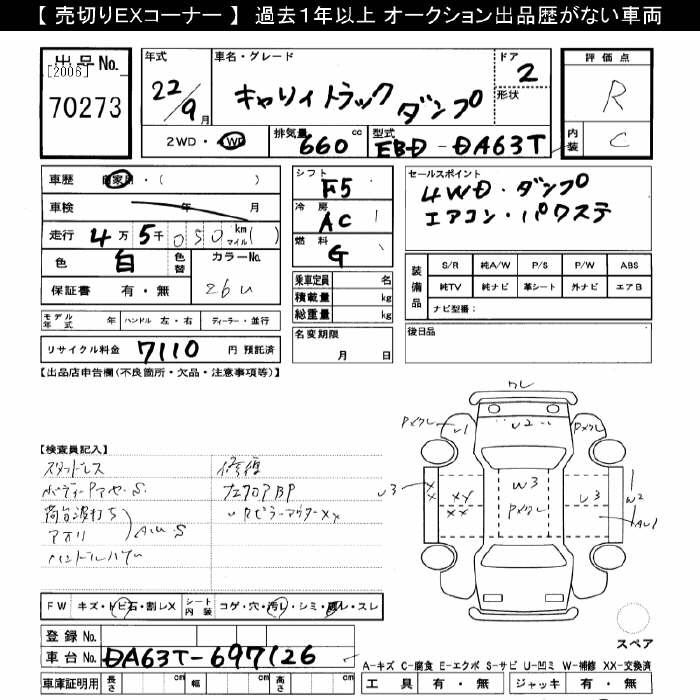 【 売切りEXコーナー 】 過去1年以上 オークション出品歴がない車両
出品No. [2006] 70273
年式 22/9月
車名・グレード キャリィトラック ダンプ
ドア 2
形状
評価点 R
内装 C
2WD・4WD
排気量 660 cc
型式 EBD-DA63T
車歴 自家用・( )
車検 年 月
走行 4万5千050 km マイル( )
色 白 色替 カラーNo. 26U
保証書 有・無
シフト F5
冷房 AC
燃料 G
セールスポイント
4WD・ダンプ
エアコン・パワステ
乗車定員 名
積載量 kg
総重量 kg
装備品
S/R 純A/W P/S P/W ABS
純TV 純ナビ 革シート 外ナビ エアB
ナビ型番:
モデル年式 年 ハンドル 左・右 ディーラー・並行
リサイクル料金 7110 円 預託済
名変期限 月 日
後日品
【出品店申告欄(不良箇所・欠品・注意事項等)】
【検査員記入】
スタッドレス 修復
荷台波打ち
アオリ
FW キズ・トビ石・割レX シート内装 コゲ・穴・汚レ・シミ・破レ・スレ
U1 U2
W3
U3 XX XY XX U3 W2
登録No.
車台No. DA63T-697126
車庫証明用 長さ cm 幅 cm 高さ cm
スペア
A-キズ C-腐食 E-エクボ S-サビ U-凹ミ W-補修 XX-交換済
工具 有・無 ジャッキ 有・無